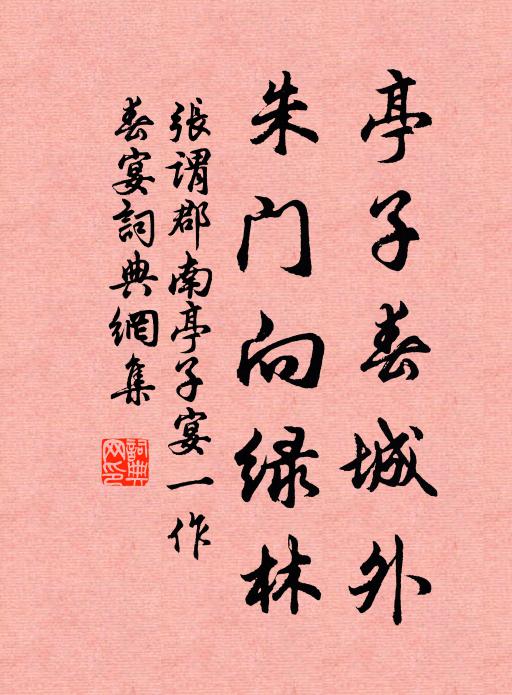 亭子春城外
朱门向绿林
張谓郡南亭子宴一作
春宴詞典網集
詞典網印